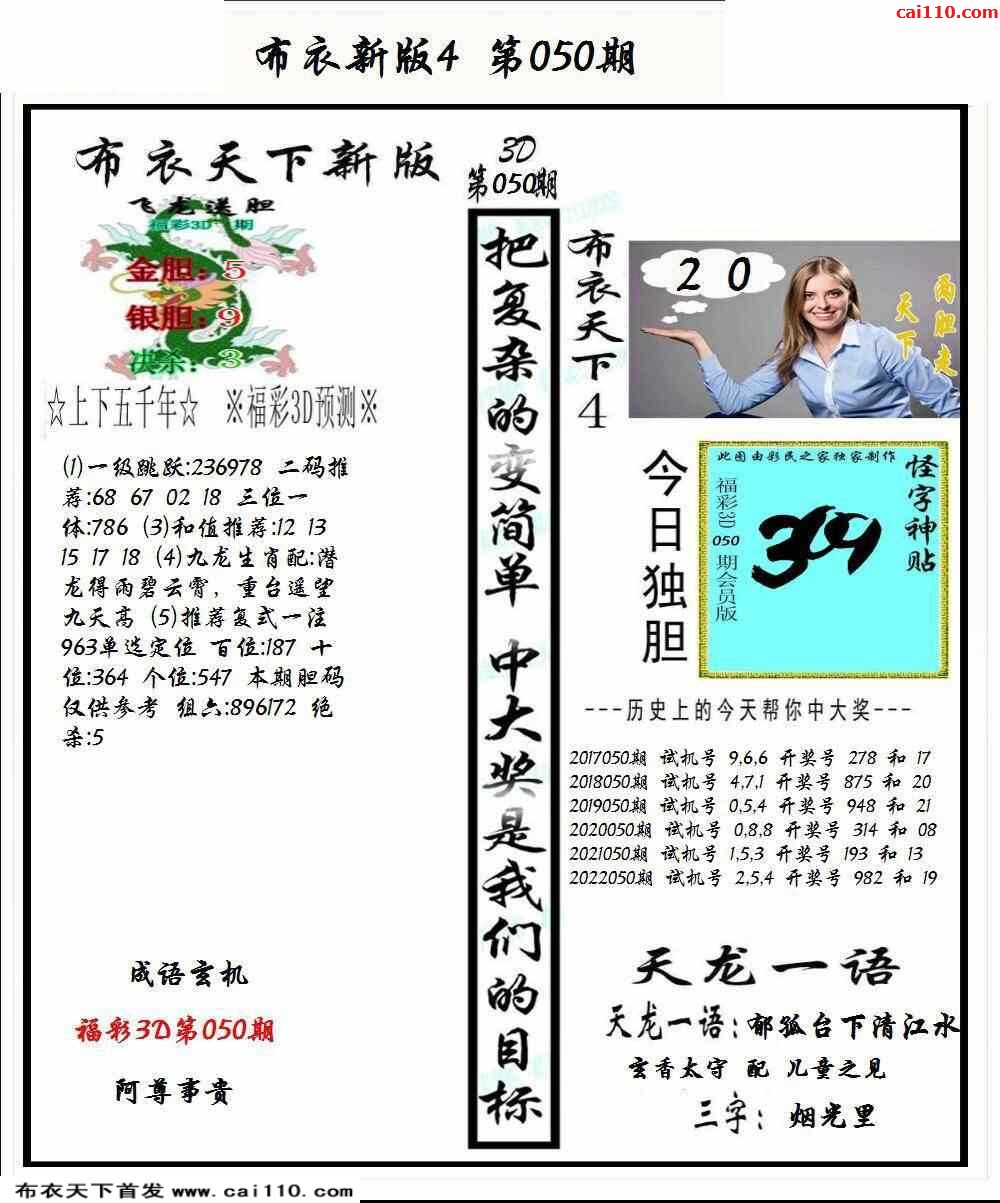 cai110.com
布衣新版4 第050期
布衣天下新版
飞龙送胆
福彩3D 期
金胆：5
银胆：9
决杀：3
☆上下五千年☆ ※福彩3D预测※
(1)一级跳跃:236978 二码推
荐:68 67 02 18 三位一
体:786 (3)和值推荐:12 13
15 17 18 (4)九龙生肖配:潜
龙得雨碧云霄，重台遥望
九天高 (5)推荐复式一注
963单选定位 百位:187 十
位:364 个位:547 本期胆码
仅供参考 组六:896172 绝
杀:5
成语玄机
福彩3D第050期
阿尊事贵
3D
第050期
把复杂的变简单 中大奖是我们的目标
布衣天下4
2 0
两胆走
天下
今日独胆
此图由彩民之家独家制作
怪字神贴
福彩3D 050 期会员版
---历史上的今天帮你中大奖---
2017050期 试机号 9,6,6 开奖号 278 和 17
2018050期 试机号 4,7,1 开奖号 875 和 20
2019050期 试机号 0,5,4 开奖号 948 和 21
2020050期 试机号 0,8,8 开奖号 314 和 08
2021050期 试机号 1,5,3 开奖号 193 和 13
2022050期 试机号 2,5,4 开奖号 982 和 19
天龙一语
天龙一语：郁孤台下清江水
玄香太守 配 儿童之见
三字： 烟光里
布衣天下首发 www.cai110.com